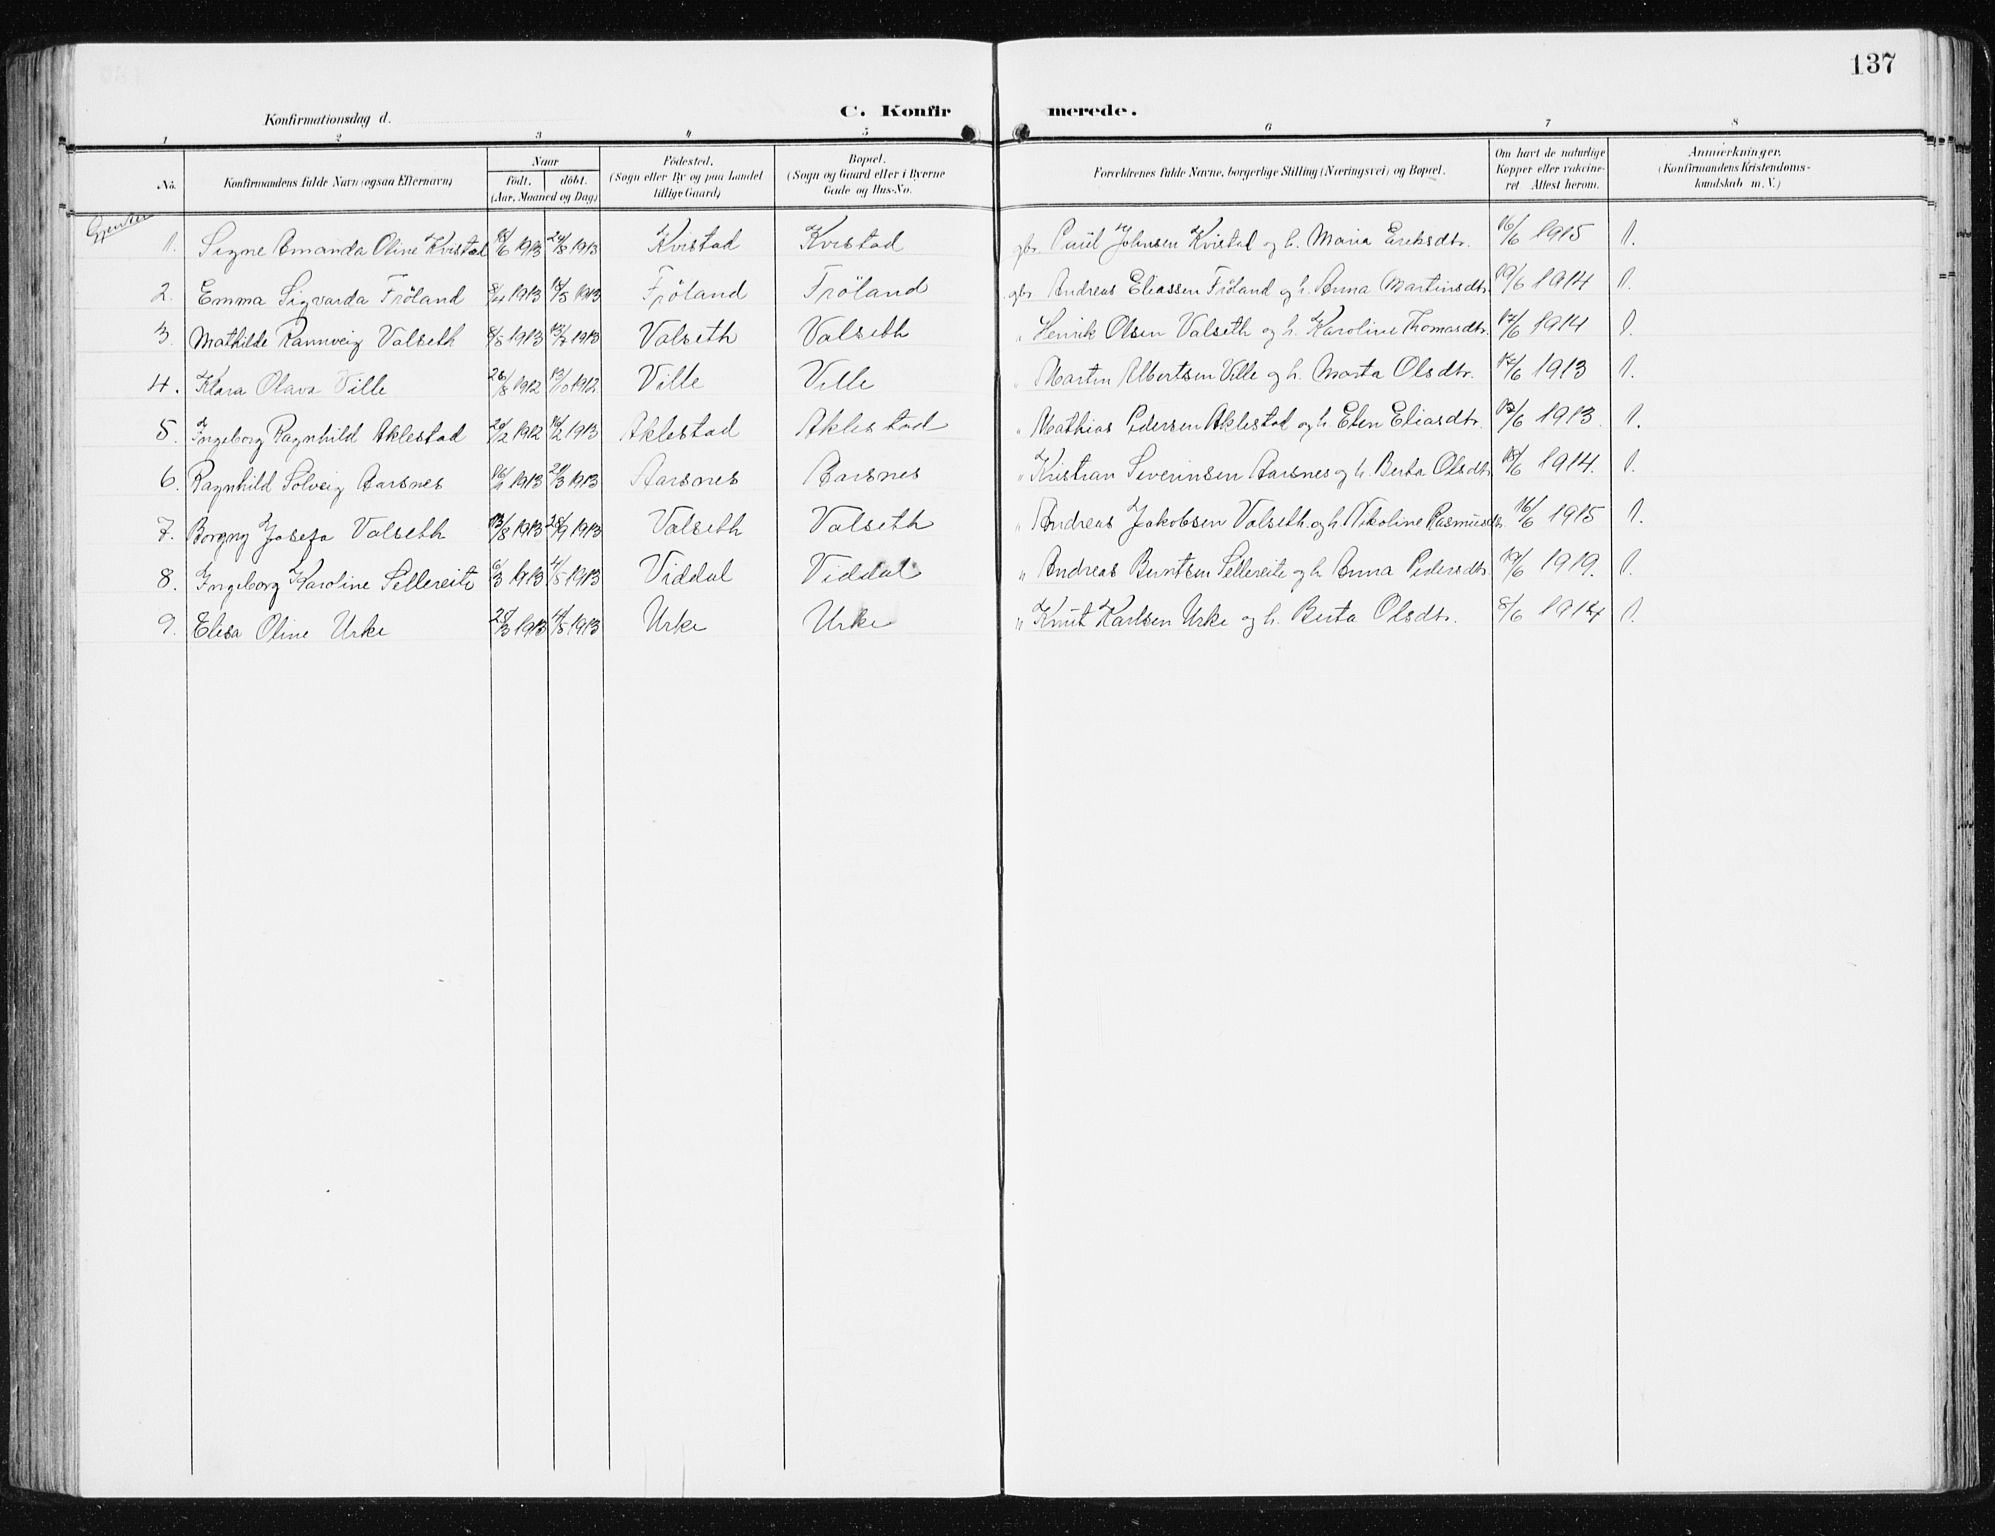 137
Konfirmationsdag d.
C. Konfirmerede.
1 2 3 4 5 6 7 8
No. Konfirmandens fulde Navn (ogsaa Efternavn) Naar født. døbt. (Aar, Maaned og Dag) Fødested. (Sogn eller By og paa Landet tillige Gaard) Bopæl. (Sogn og Gaard eller i Byerne Gade og Hus-No. Forældrenes fulde Navne, borgerlige Stilling (Næringsvei) og Bopæl. Om havt de naturlige Kopper eller vakcineret Attest herom. Anmærkninger. (Konfirmandens Kristendomskundskab m. V.)
Gjenter
1. Signe Amanda Oline Kvistad 18/6 1913 24/8 1913 Kvistad Kvistad gbr. Paul Johnsen Kvistad og h. Maria Eriksdtr. 16/6 1915 1.
2. Emma Sigvarda Fröland 8/4 1913 12/5 1913 Fröland Fröland gbr Andreas Eliassen Fröland og h. Anna Martinsdtr. 19/6 1914 1.
3. Mathilde Rannveig Valseth 8/5 1913 13/7 1913 Valseth Valseth " Henrik Olsen Valseth og h. Karoline Thomasdtr. 17/6 1914 1.
4. Klara Olava Ville 26/8 1912 13/10 1912 Ville Ville " Martin Albertsen Ville og h. Marta Olsdtr. 12/6 1913 1.
5. Ingeborg Ragnhild Aklestad 20/12 1912 16/2 1913 Aklestad Aklestad " Mathias Pedersen Aklestad og h. Elen Eliasdtr. 13/6 1913. 1.
6. Ragnhild Solveig Aarsnes 16/1 1913 21/3 1913 Aarsnes Aarsnes " Kristian Severinsen Aarsnes og h. Berta Olsdtr. 18/6 1914. 1.
7. Borgny Josefa Valseth 13/8 1913 28/9 1913 Valseth Valseth " Andreas Jakobsen Valseth og h. Nikoline Rasmusdtr. 16/6 1915 1.
8. Ingeborg Karoline Sellereite 6/3 1913 4/5 1913 Viddal Viddal " Andreas Berntsen Sellereite og h. Anna Pedersdtr. 17/6 1919. 1.
9. Elisa Oline Urke 28/3 1913 11/5 1913 Urke Urke " Knut Karlsen Urke og h. Berta Olsdtr. 8/6 1914 1.